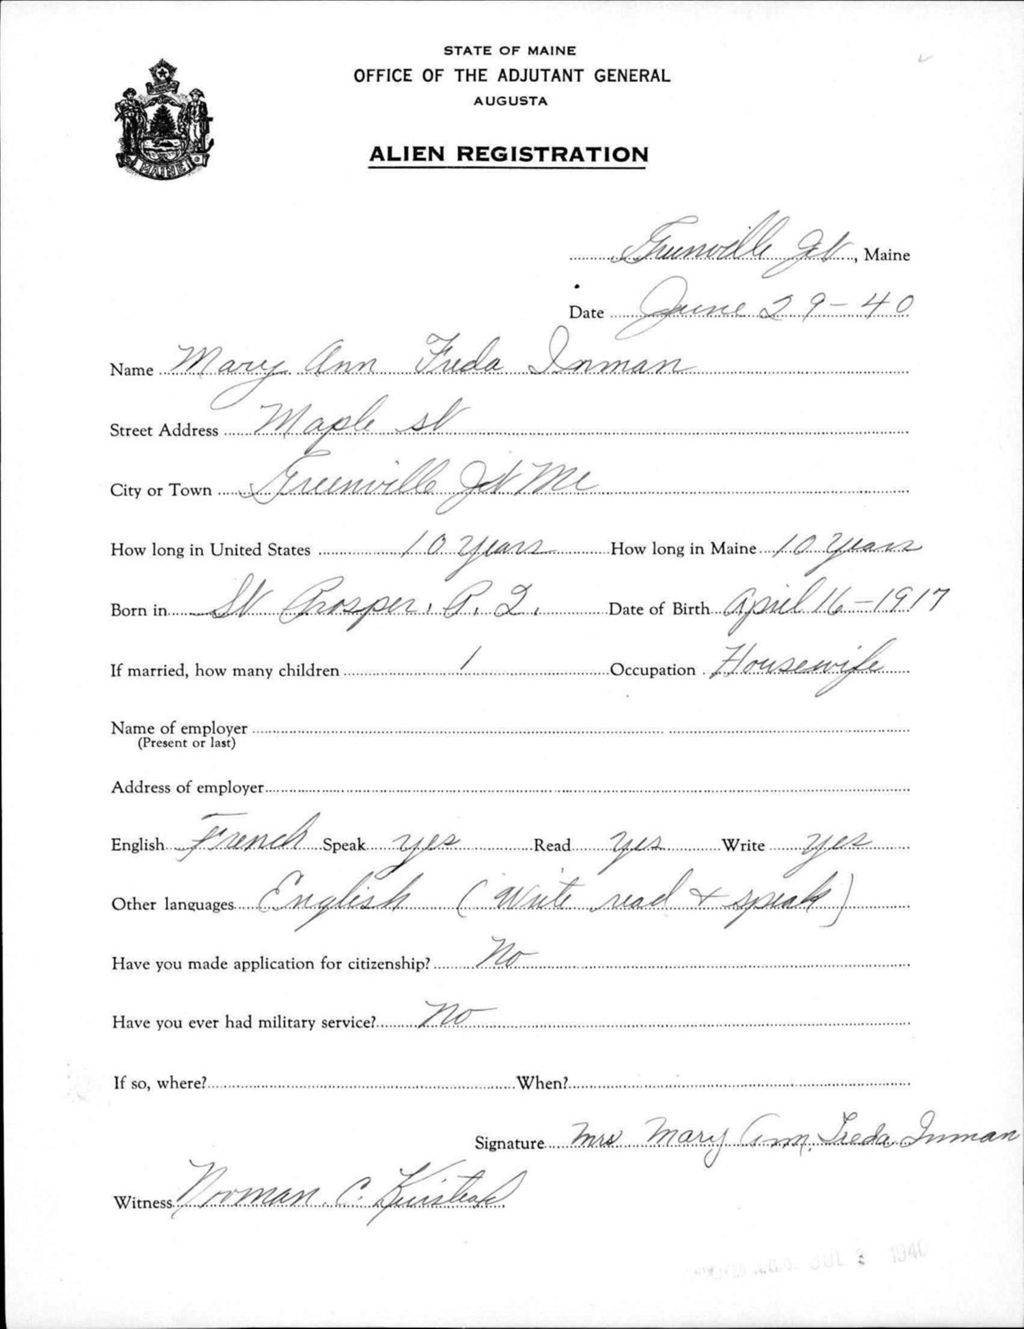 STATE OF MAINE
OFFICE OF THE ADJUTANT GENERAL
AUGUSTA
MAINE
ALIEN REGISTRATION
Greenville Jct, Maine
Date June 29-40
Name Mary Ann Freda Inman
Street Address Maple st
City or Town Greenville Jct Me
How long in United States 10 years How long in Maine 10 years
Born in St Prosper. P. Q. Date of Birth April 16-1917
If married, how many children 1 Occupation Housewife
Name of employer
(Present or last)
Address of employer
English French Speak yes Read yes Write yes
Other languages English (Write read + speak)
Have you made application for citizenship? No
Have you ever had military service? No
If so, where? When?
Signature Mrs Mary Ann Freda Inman
Witness Norman C.
JUL 2 1940